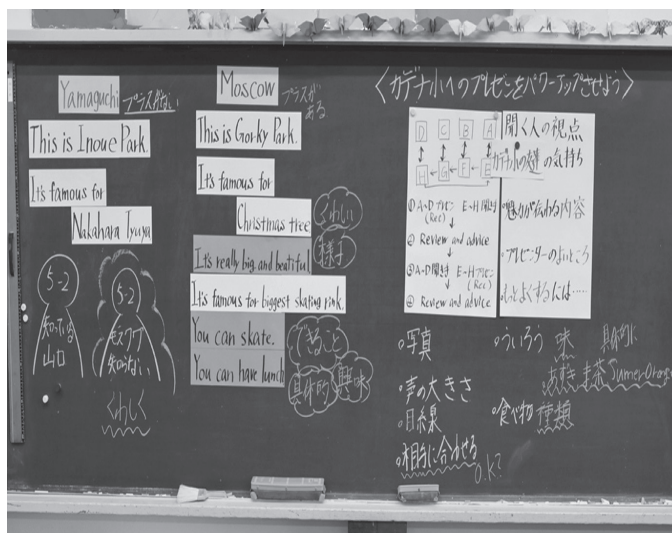 Yamaguchi プラスがない
This is Inoue Park.
It's famous for
Nakahara Tyuya
5-2
知っている
山口
5-2
モスクワ
知らない
くわしく
Moscow プラスがある
This is Gorky Park.
It's famous for
Christmas tree
くわしい
様子
It's really big and beatiful
It's famous for biggest skating rink.
You can skate.
You can have lunch
できること
具体的
興味
〈カデナ小へのプレゼンをパワーアップさせよう〉
D C B A
H G F E
①A~D プレゼン E~H 聞き手
(Rec)
② Review and advice
③A~D聞き手 E~Hプレゼン
(Rec)
④ Review and advice
聞く人の視点
カデナ小の友達の気持ち
・魅力が伝わる内容
・プレゼンターのよいところ
・もっとよくするには……
・写真
・声の大きさ
・目線
・相手に合わせる
O.K?
・ういろう 味 具体的に
あずき 抹茶 Sumer Orange
・食べ物 種類